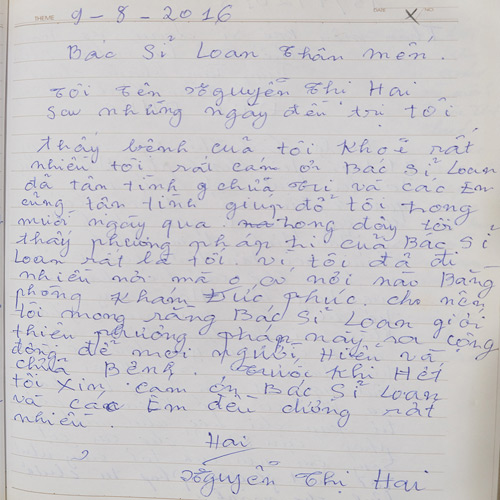 THEME 9-8-2016 DATE X NO.
Bác Sĩ Loan thân mến.
Tôi tên Nguyễn Thị Hai
Sau những ngày đến trị tôi
thấy bệnh của tôi khoẻ rất
nhiều tôi rất cám ơn Bác Sĩ Loan
đã tân tình chữa trị và các Em
cũng tân tình giúp đỡ tôi trong
mười ngày qua. trong đây tôi
thấy phương pháp trị của Bác Sĩ
Loan rất là tốt. vì tôi đã đi
nhiều nơi mà o có nơi nào Bằng
phòng khám Đức phúc. cho nên
tôi mong rằng Bác Sĩ Loan giới
thiệu phương pháp này ra cộng
đồng để mọi người Hiểu và
chữa Bệnh. Trước khi Hết
tôi xin cam ơn Bác Sĩ Loan
và các Em đều dưỡng rất
nhiều.
Hai
Nguyễn Thị Hai